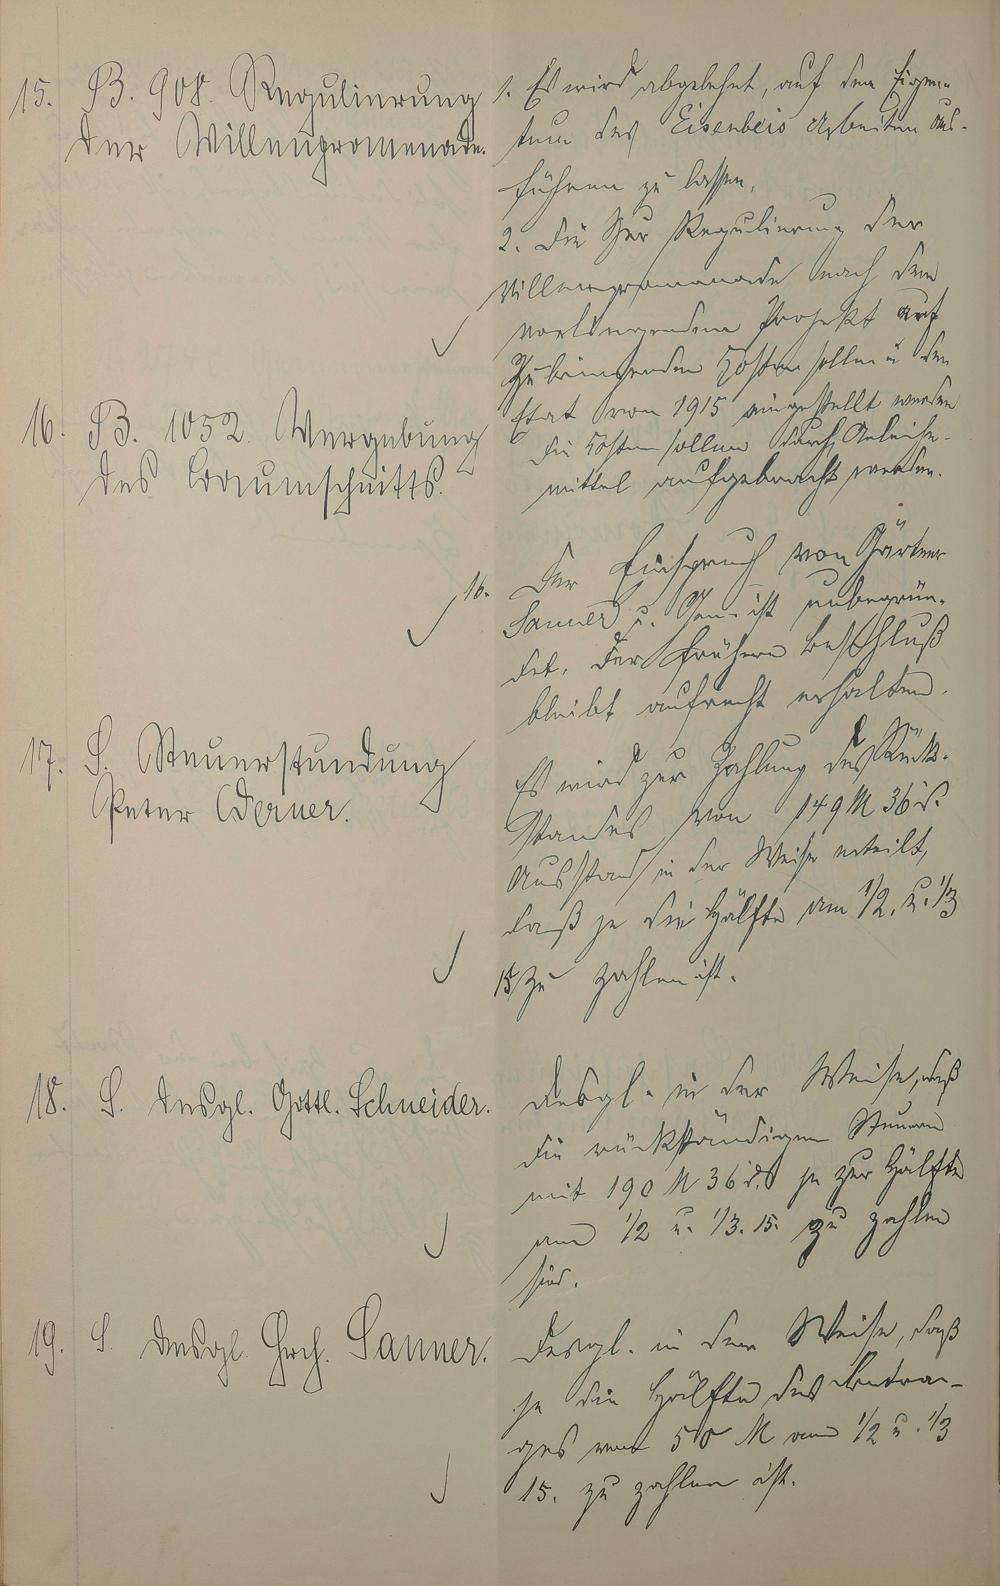 15. B. 908. Regulierung
der Villenpromenade.
1. Es wird abgelehnt, auf dem Eigen-
tum des Eisenbeis Arbeiten aus-
führen zu lassen.
2. Die zur Regulierung der
Villenpromenade nach dem
vorliegenden Projekt auf
zubringenden Kosten sollen in den
Etat von 1915 eingestellt werden
die Kosten sollen durch Anleihe-
mittel aufgebracht werden.
16. B. 1052. Vergebung
des Baumschnitts.
16. Der Einspruch von Gärtner
Sanner u. Gen. ist unbegrün-
det. Der frühere Beschluß
bleibt aufrecht erhalten.
17. S. Steuerstundung
Peter Werner.
Es wird zur Zahlung des Rück-
standes von 149 M 36 d.
Ausstand in der Weise erteilt,
daß je die Hälfte am 1/2. u. 1/3
15 zu zahlen ist.
18. S. desgl. Gottl. Schneider.
desgl. in der Weise, daß
die rückständigen Steuern
mit 190 M 36 d. je zur Hälfte
am 1/2 u. 1/3. 15. zu zahlen
sind.
19. S. desgl. Hrch. Sanner.
desgl. in dem Weise, daß
je die Hälfte des Betra-
ges von 50 M am 1/2 u. 1/3
15. zu zahlen ist.